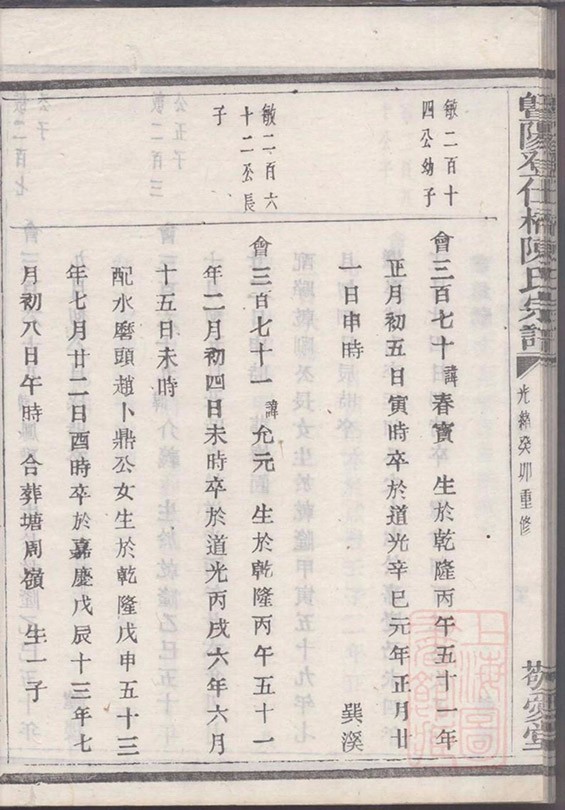 暨陽登仕橋陳氏宗譜
光緒癸卯重修
敬愛堂
敏二百十
四公幼子
會三百七十諱春寳 生於乾隆丙午五十一年
正月初五日寅時卒於道光辛巳元年正月廿
一日申時 巽溪
敏二百六
十二公長
子
會三百七十一諱允元 生於乾隆丙午五十一
年二月初四日未時卒於道光丙戌六年六月
十五日未時
配水磨頭趙卜鼎公女生於乾隆戊申五十三
年七月廿二日酉時卒於嘉慶戊辰十三年七
月初八日午時 合葬塘周嶺 生一子